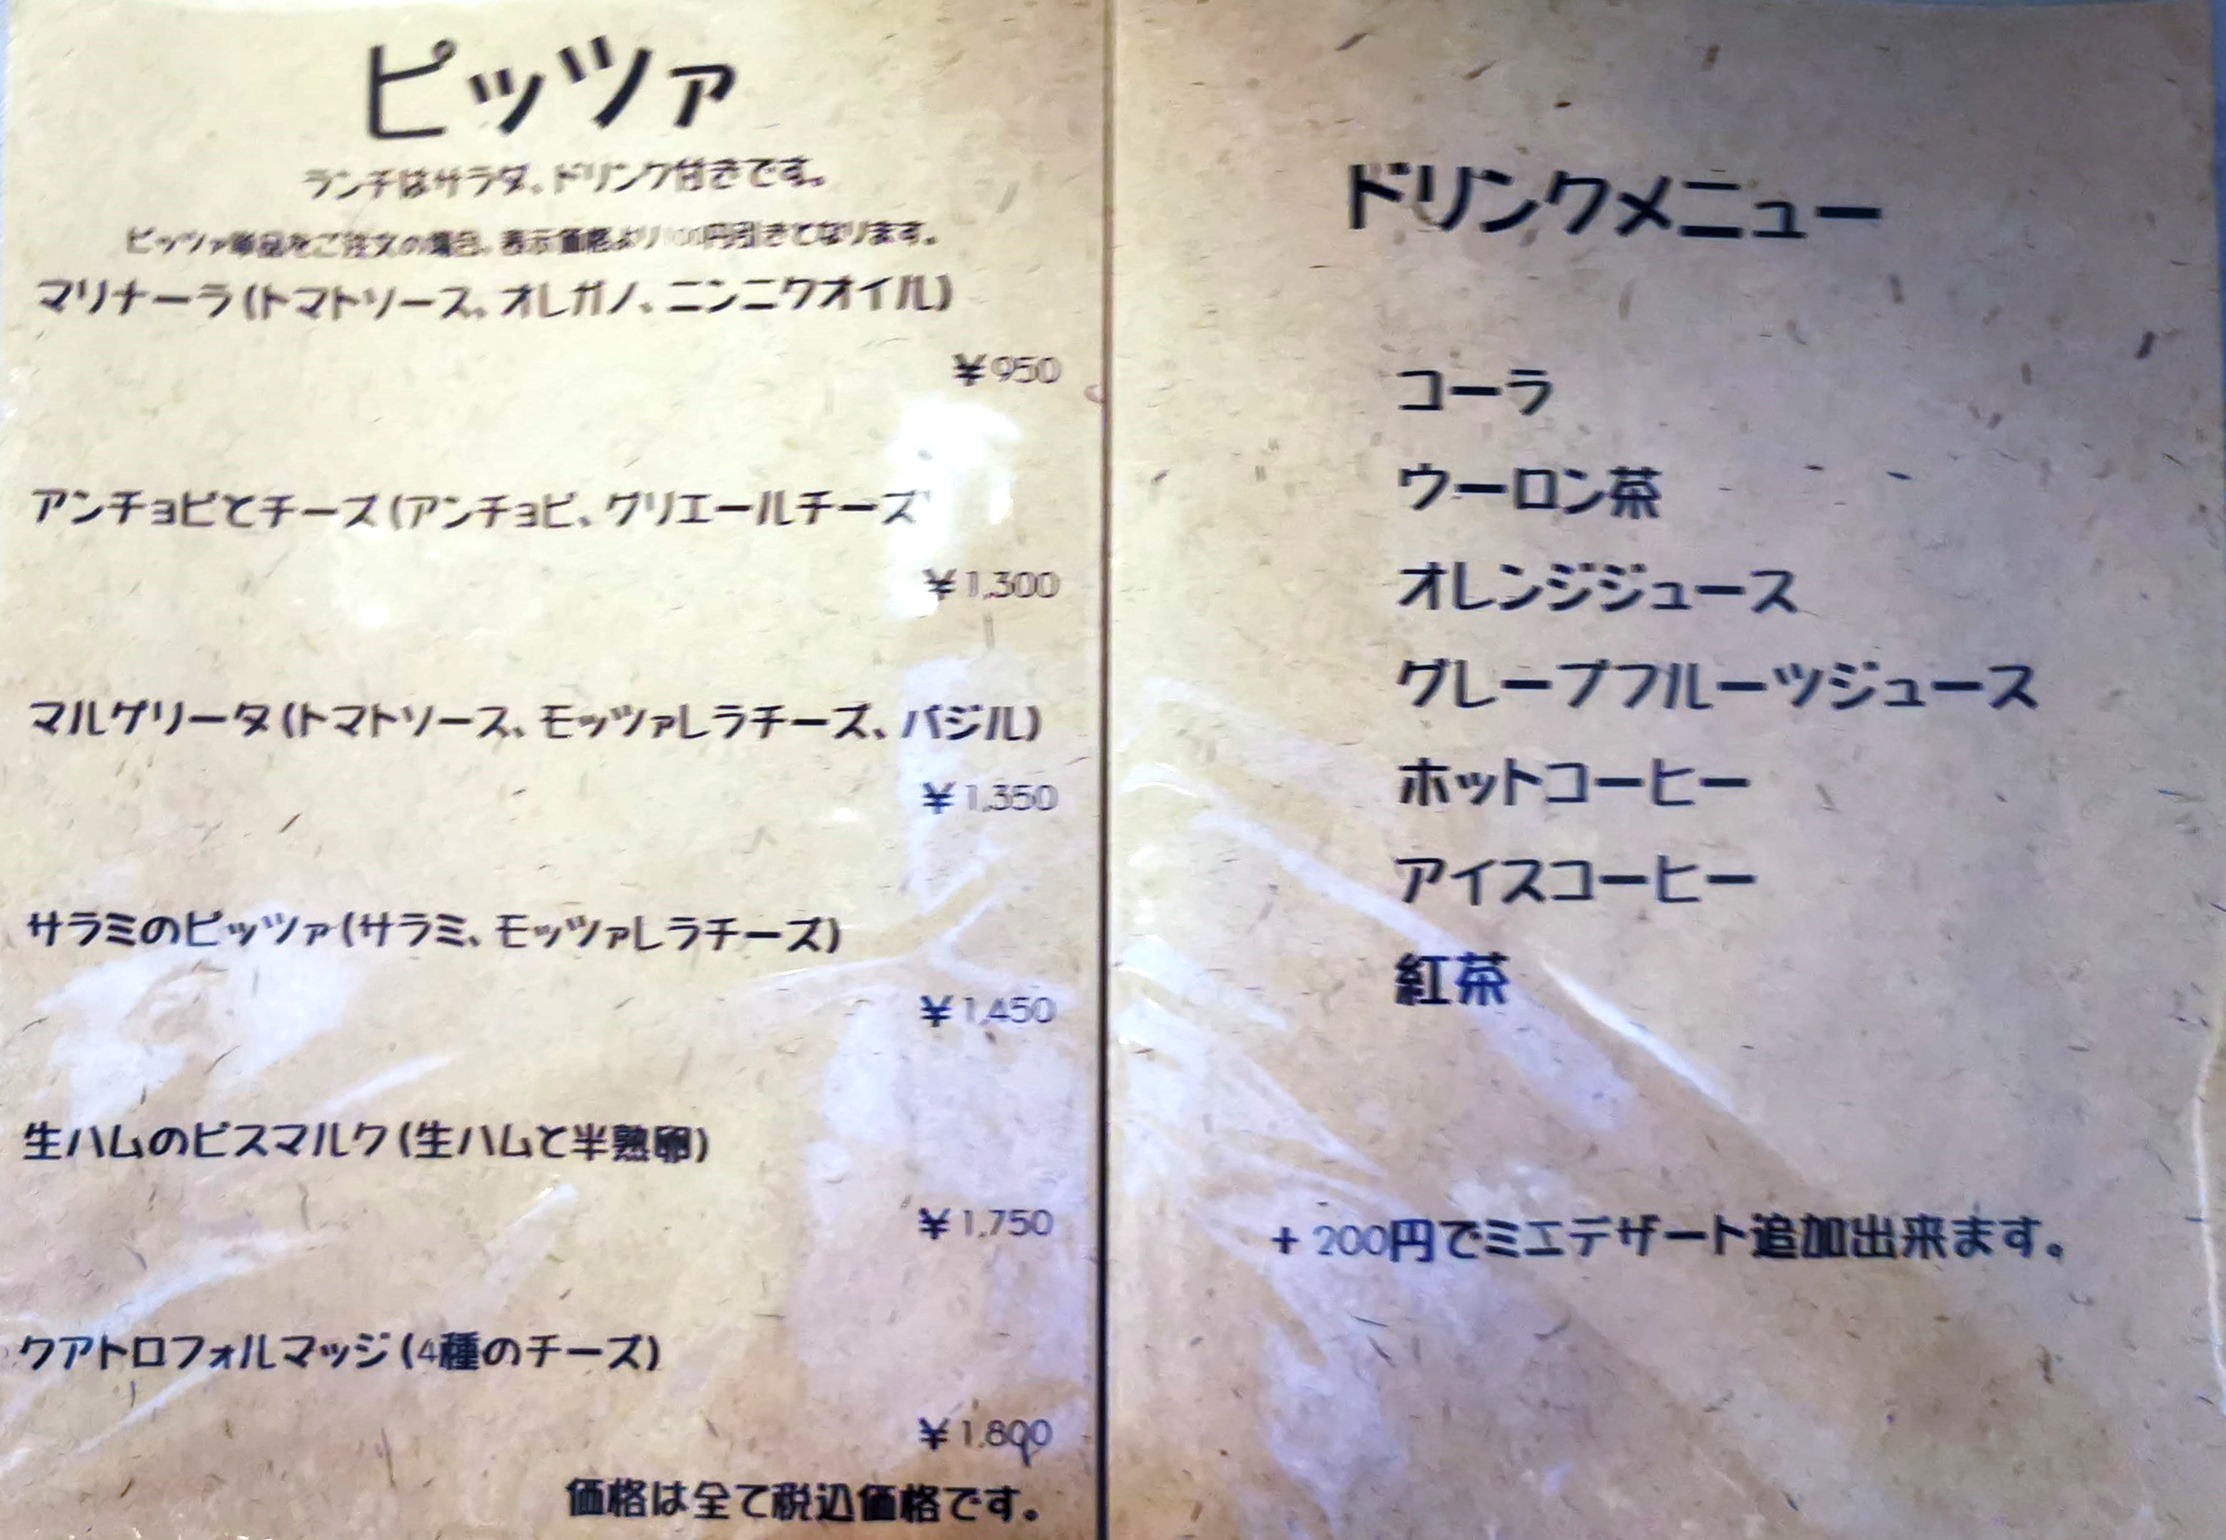 ピッツァ
ランチはサラダ、ドリンク付きです。
ピッツァ単品をご注文の場合、表示価格より 円引きとなります。
マリナーラ(トマトソース、オレガノ、ニンニクオイル)
¥950
アンチョビとチーズ(アンチョビ、グリエールチーズ
¥1,300
マルゲリータ(トマトソース、モッツァレラチーズ、バジル)
¥1,350
サラミのピッツァ(サラミ、モッツァレラチーズ)
¥1,450
生ハムのビスマルク(生ハムと半熟卵)
¥1,750
クアトロフォルマッジ(4種のチーズ)
¥1,800
価格は全て税込価格です。
ドリンクメニュー
コーラ
ウーロン茶
オレンジジュース
グレープフルーツジュース
ホットコーヒー
アイスコーヒー
紅茶
+200円でミエデザート追加出来ます。